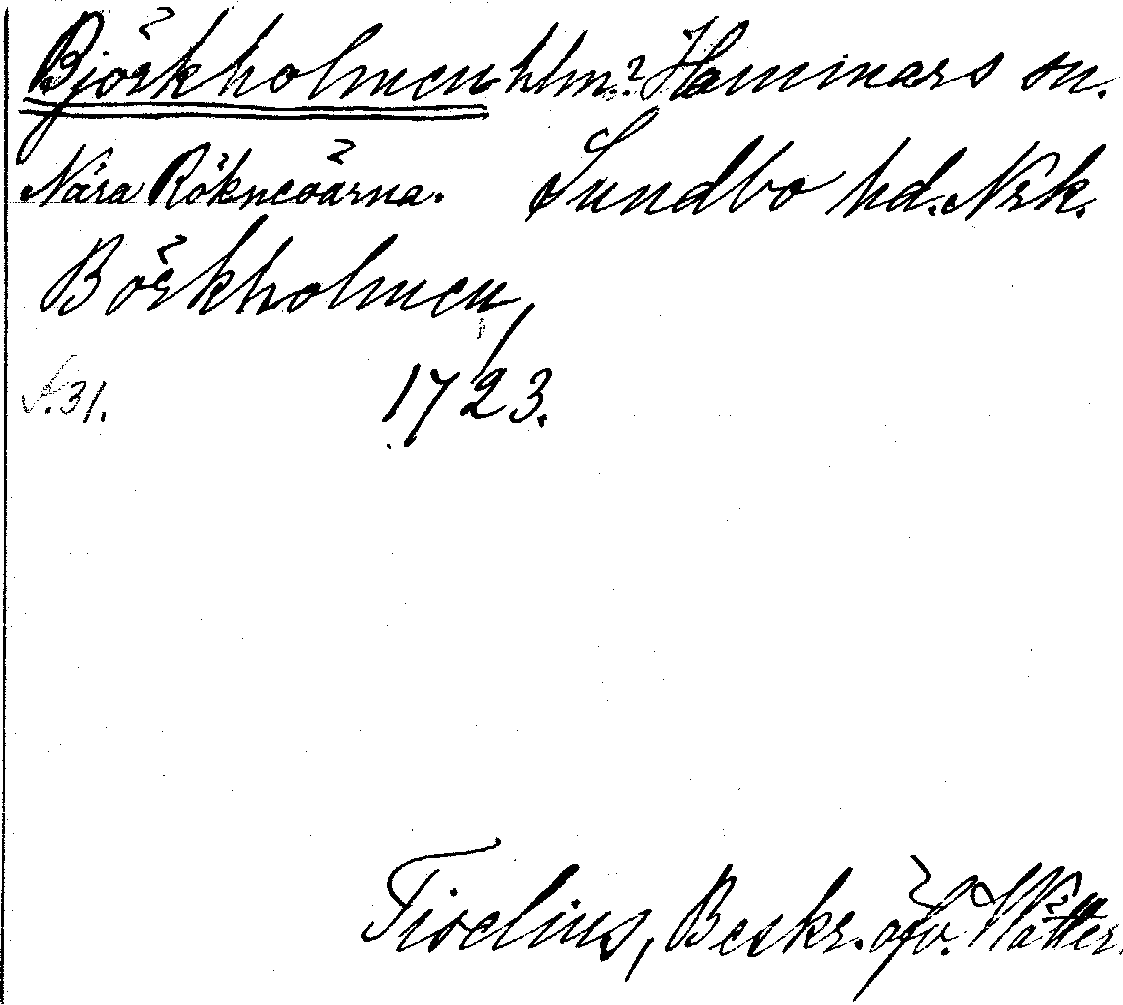 Björkholmen hlm? Hammars sn.
Nära Rökneöarna. Sundbo hd. Nrk.
Börkholmen,
S. 31. 1723.
Tiselius, Beskr. öfv. Wätter.